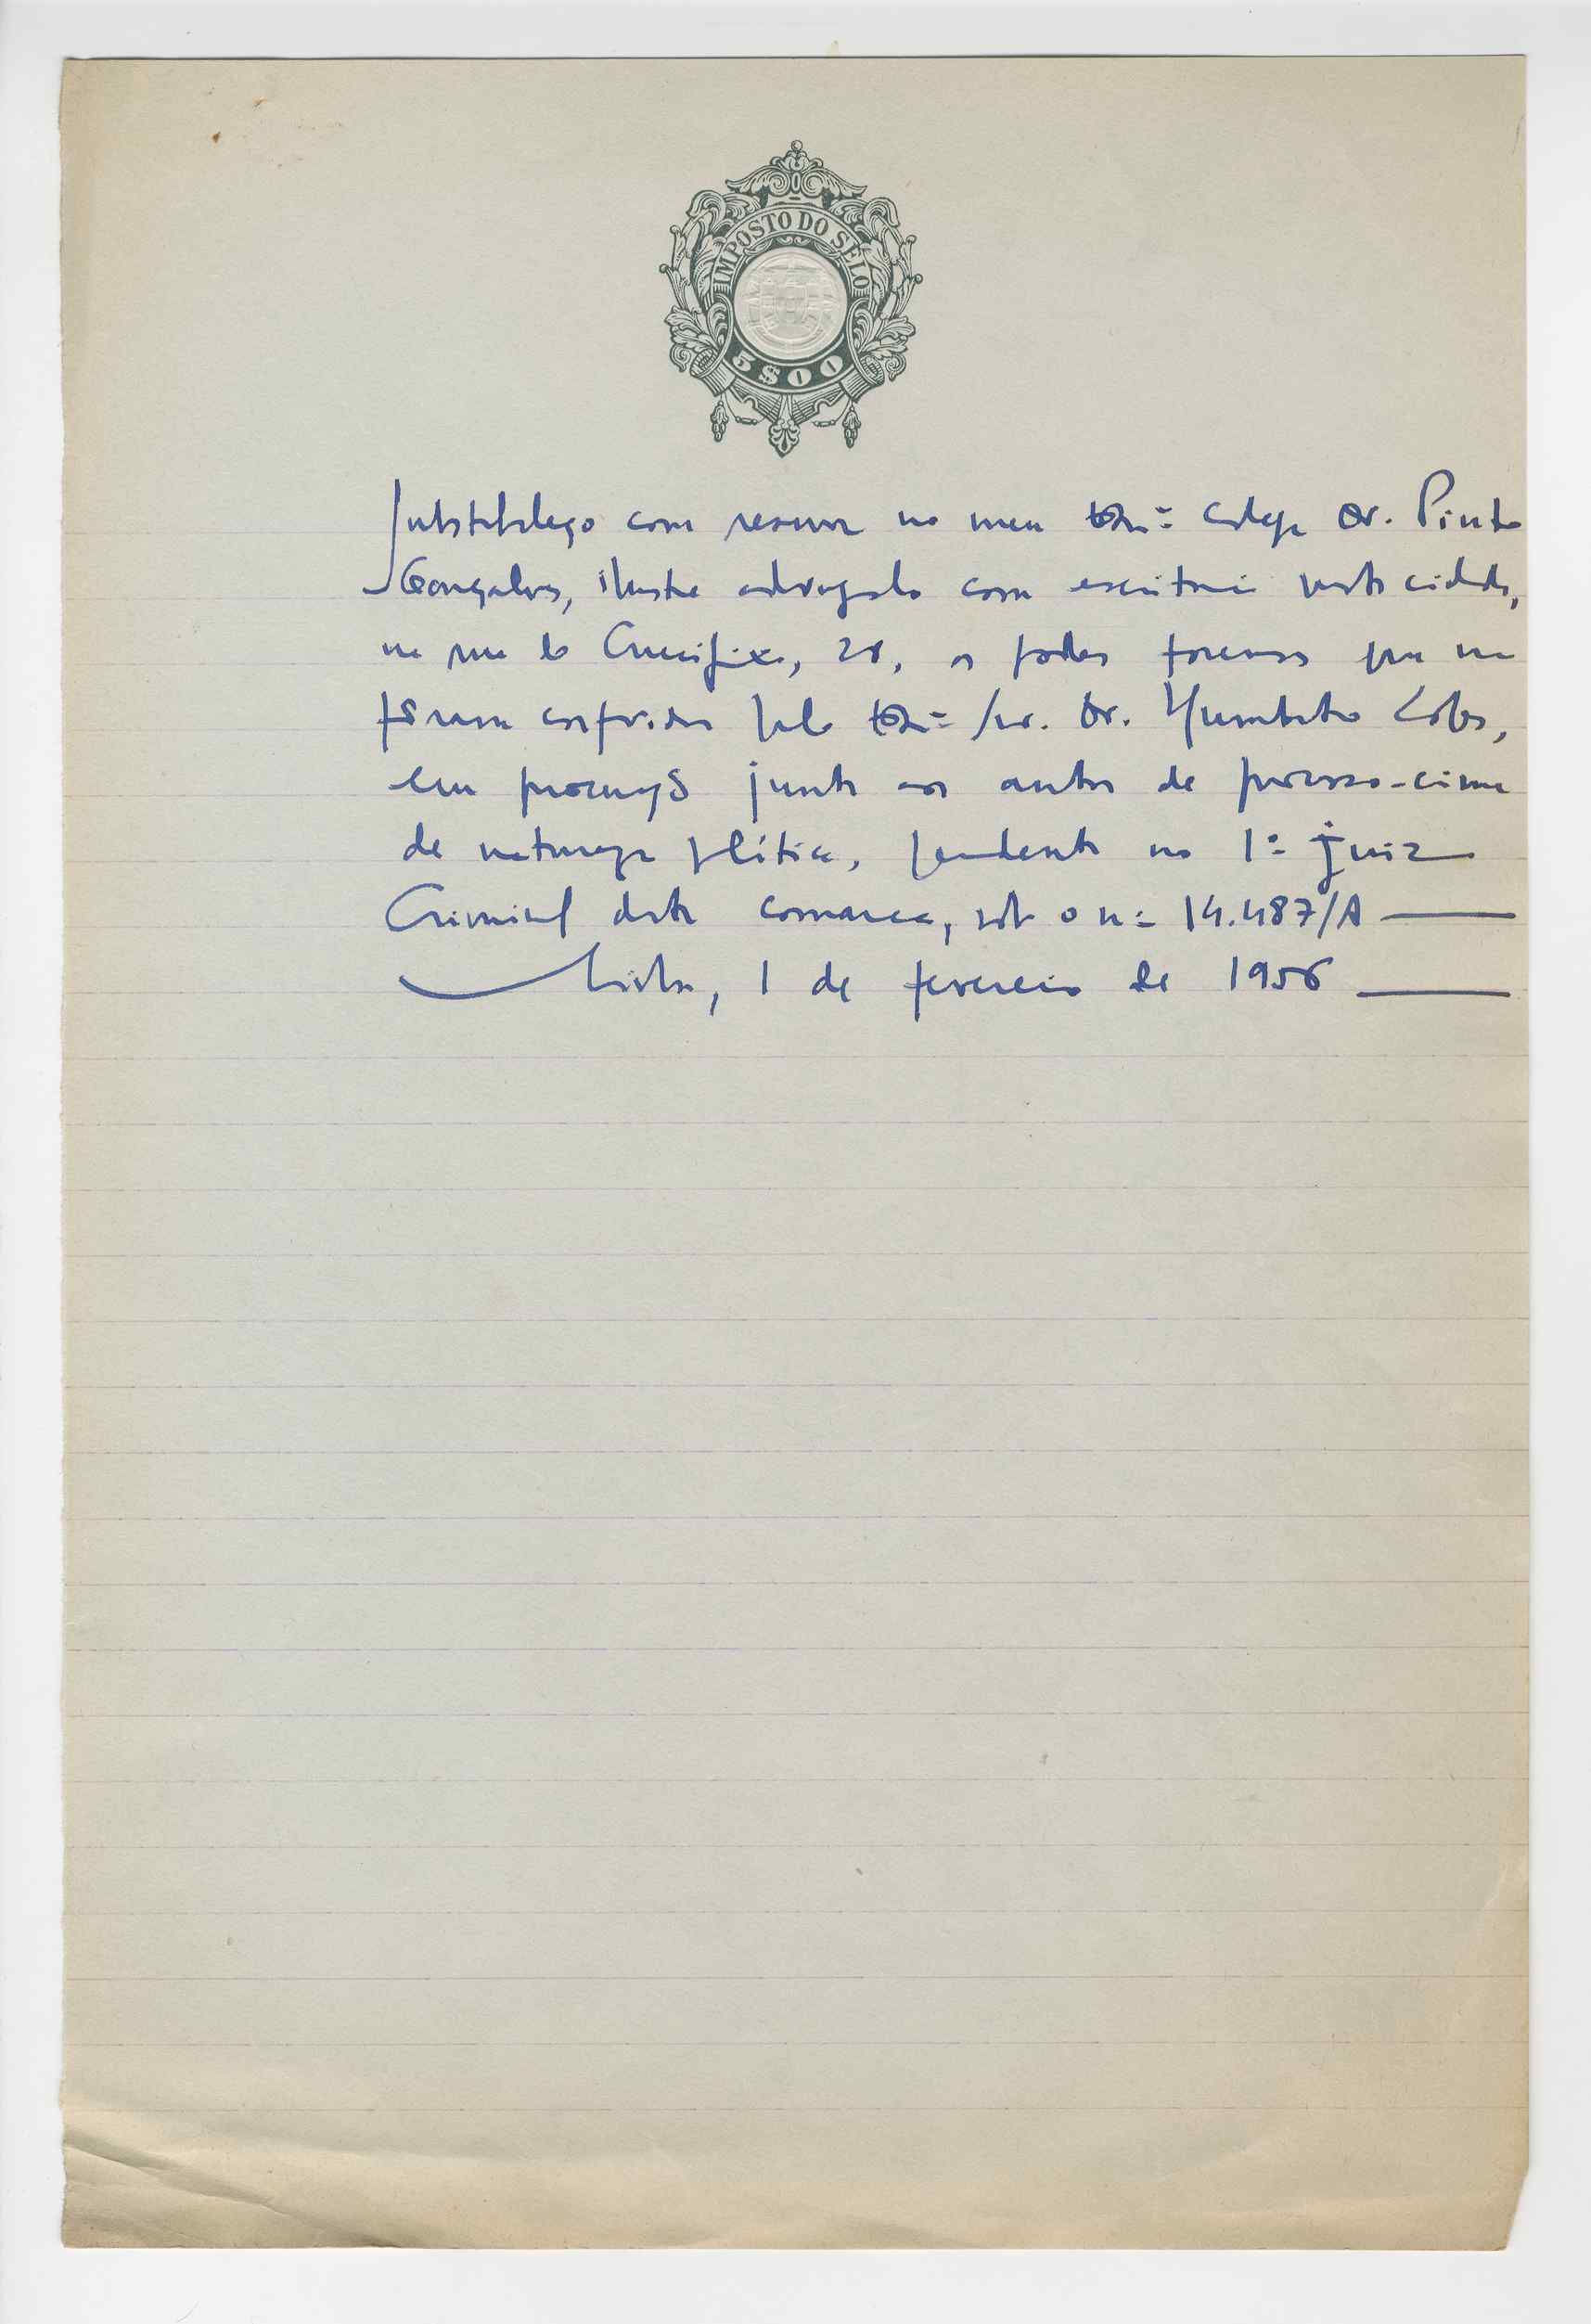 IMPOSTO DO SELO
5$00
Substabeleço com reserva no meu Exmº colega Dr. Pinto
Gonçalves, ilustre advogado com escritório nesta cidade,
na rua do Crucifixo, 28, os poderes forenses que me
fôram conferidos pelo Exmº Snr. Dr. Humberto Lopes,
em procuração junta aos autos de processo-crime
de natureza política, pendente no 1º Juizo
Criminal desta comarca, sob o nº 14.487/A
Lisboa, 1 de fevereiro de 1956